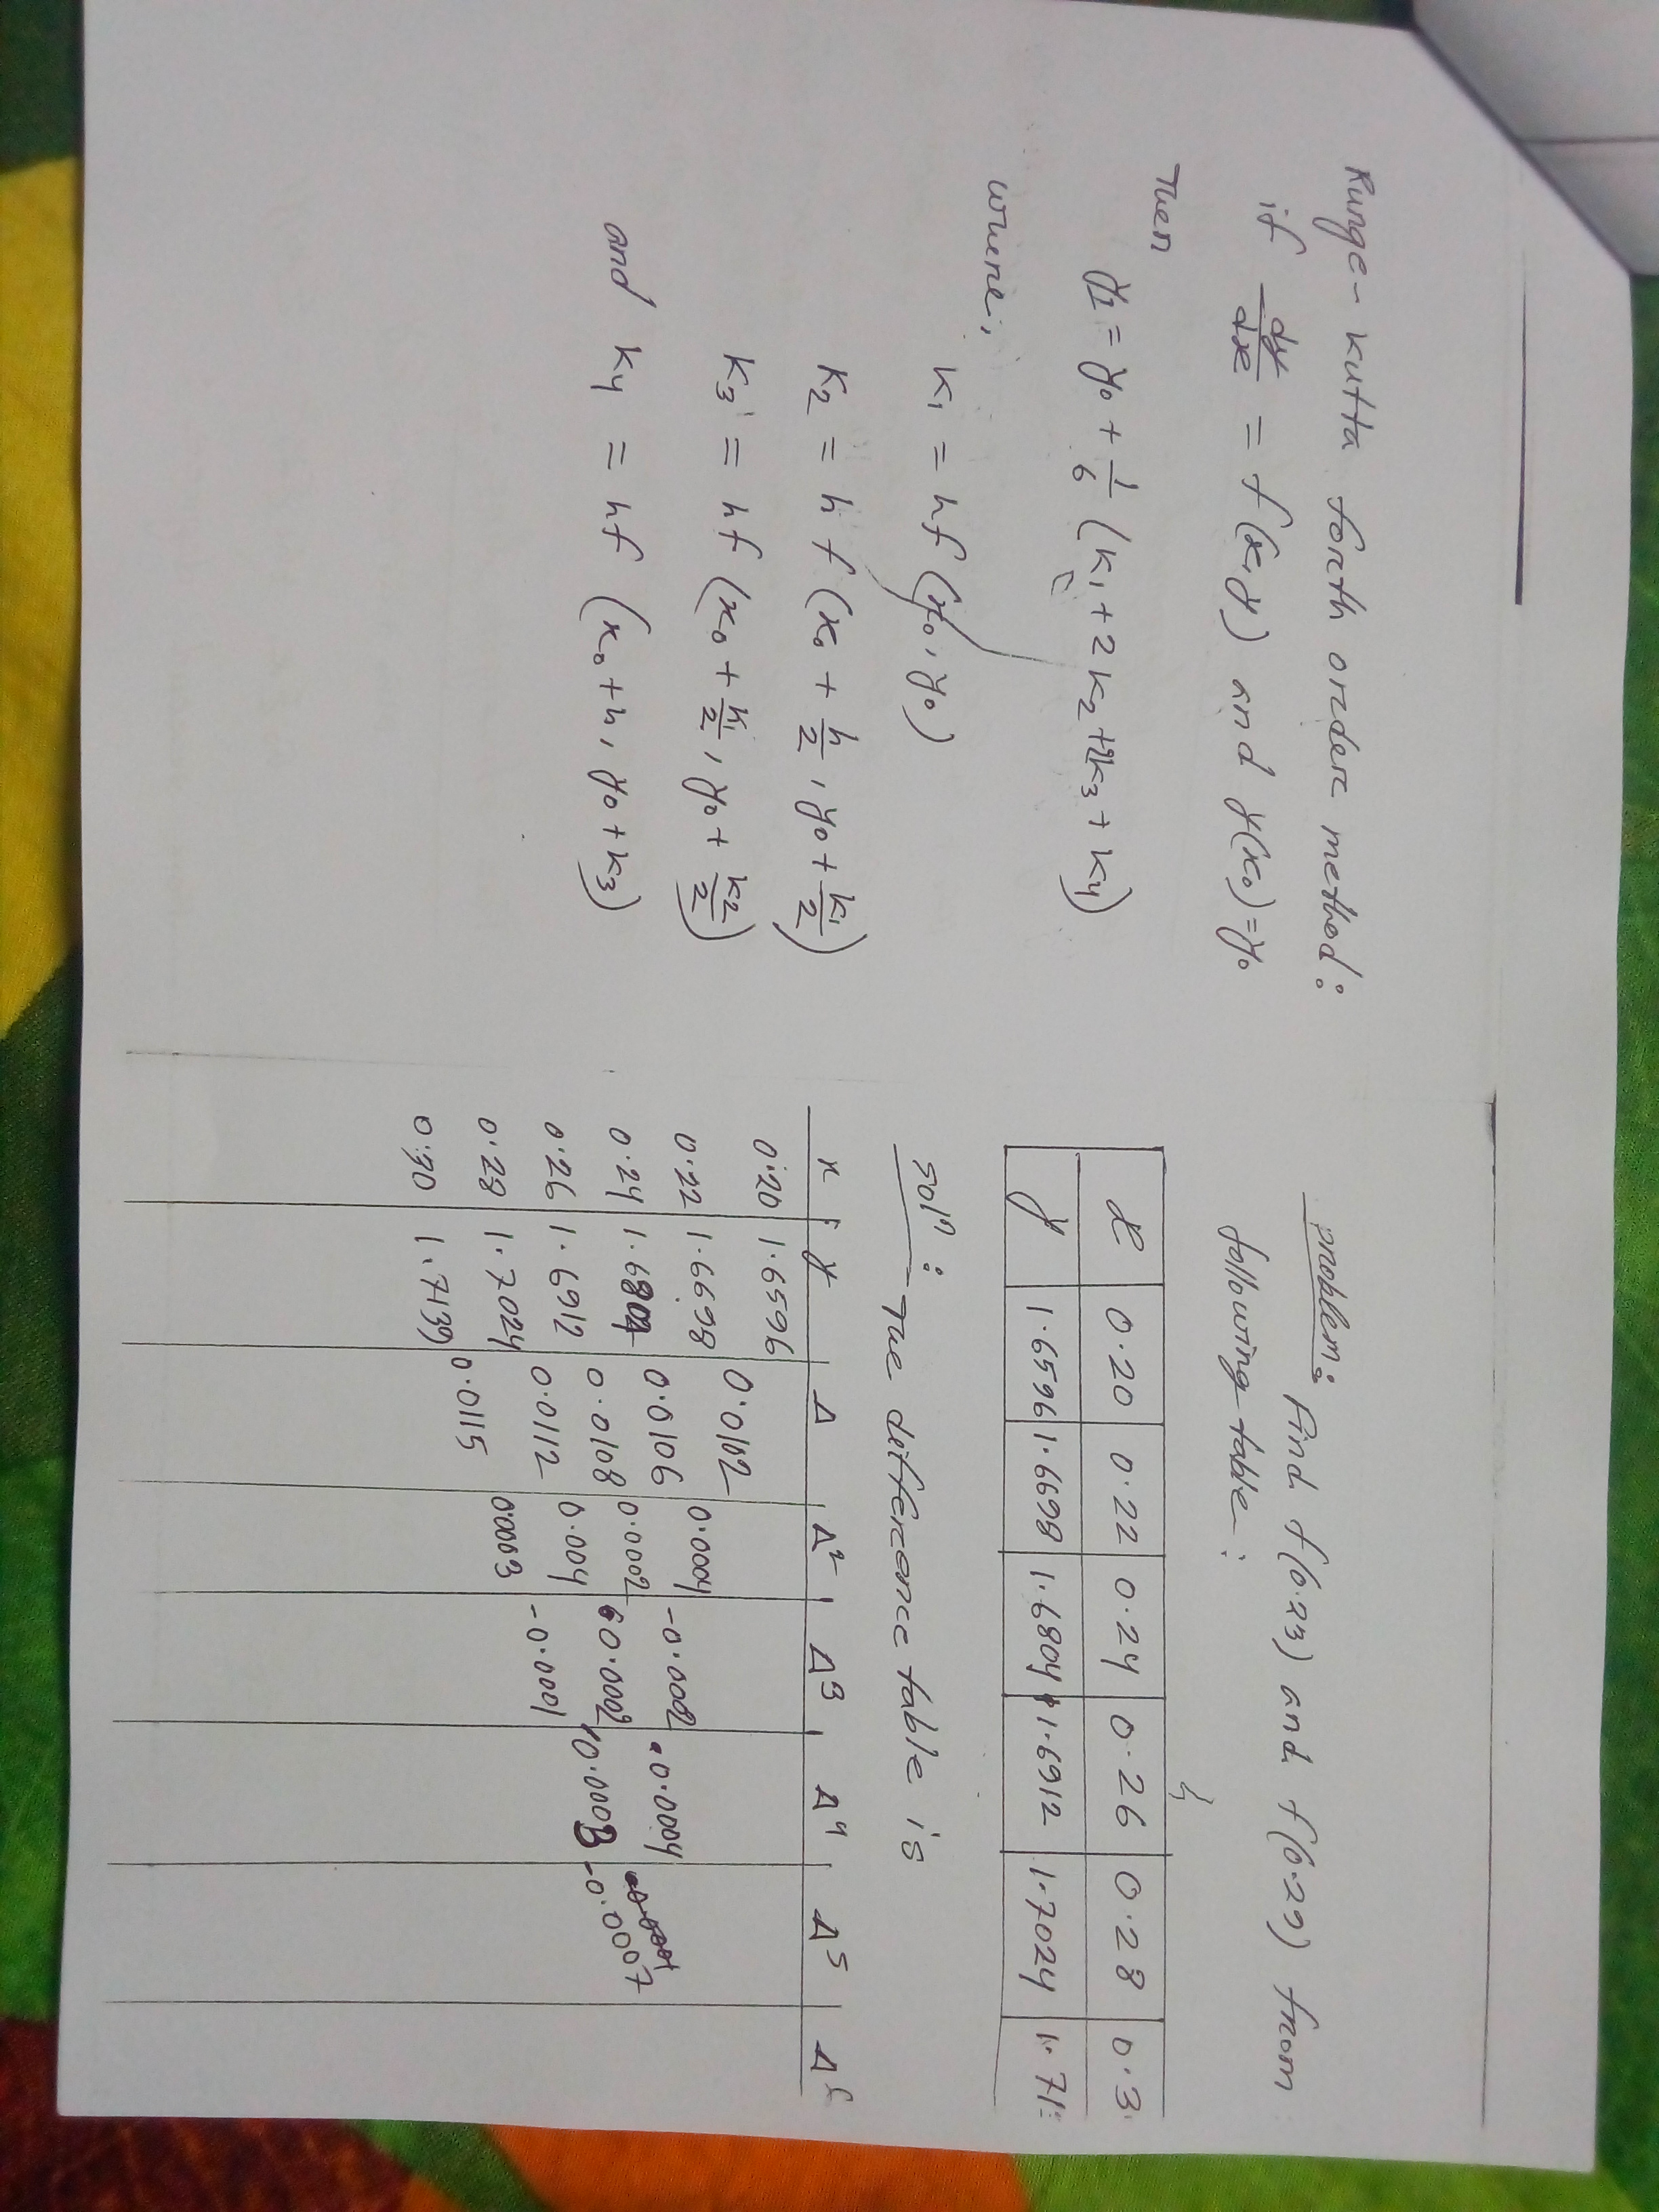 Runge- kutta forth order method:
if dy/dx = f(x, y) and y(x₀)=y₀
Then
y₁ = y₀ + 1/6 (K₁ + 2 K₂ + 2K₃ + K₄)
where,
K₁ = hf (x₀, y₀)
K₂ = h f (x₀ + h/2, y₀ + K₁/2)
K₃ = hf (x₀ + K₁/2, y₀ + K₂/2)
and K₄ = hf (x₀+h, y₀+K₃)
problem: Find f(0.23) and f(0.29) from
following table:
x 0.20 0.22 0.24 0.26 0.28 0.3
y 1.6596 1.6698 1.6804 1.6912 1.7024 1.71
solⁿ: The difference table is
x y Δ Δ² Δ³ Δ⁴ Δ⁵ Δ
0.20 1.6596
0.0102
0.22 1.6698 0.0004
0.0106 -0.0002
0.24 1.6804 0.0002 0.0004
0.0108 0.0002 -0.0007
0.26 1.6912 0.004 0.0003
0.0112 -0.0001
0.28 1.7024 0.0003
0.0115
0.30 1.7139